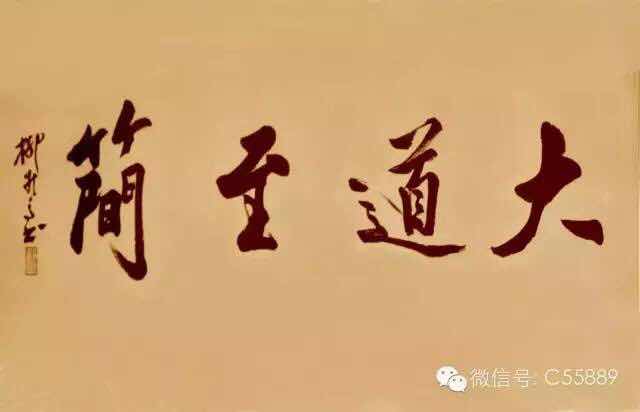 大道至簡
微信号: C55889